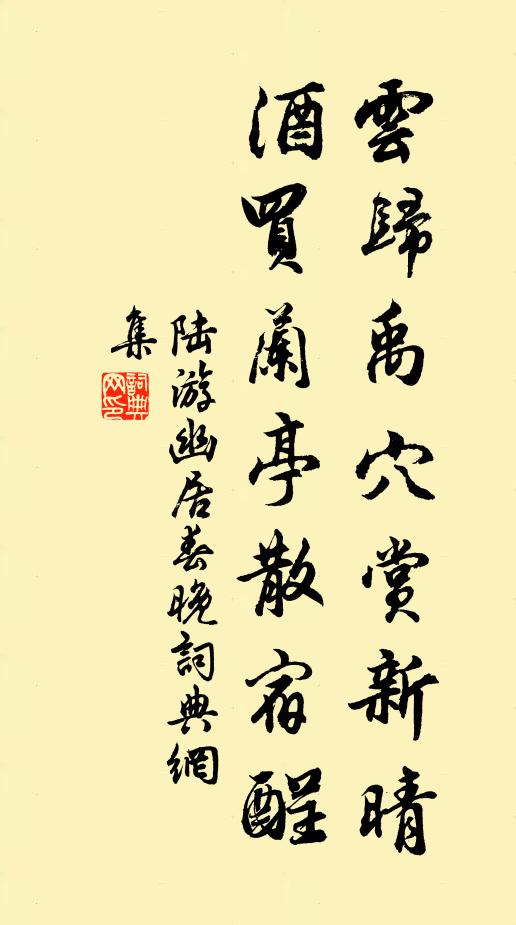 雲歸禹穴賞新晴
酒買蘭亭散宿酲
陆游幽居春晚詞典網
集
詞典网印